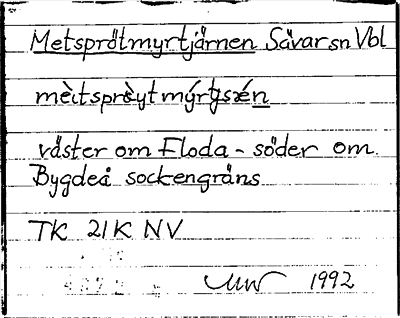 Metsprötmyrtjärnen Sävar sn Vbl
mèitsprø̀ytmýrtʃæ̀n
väster om Floda - söder om
Bygdeå sockengräns
TK 21K NV
UW 1992